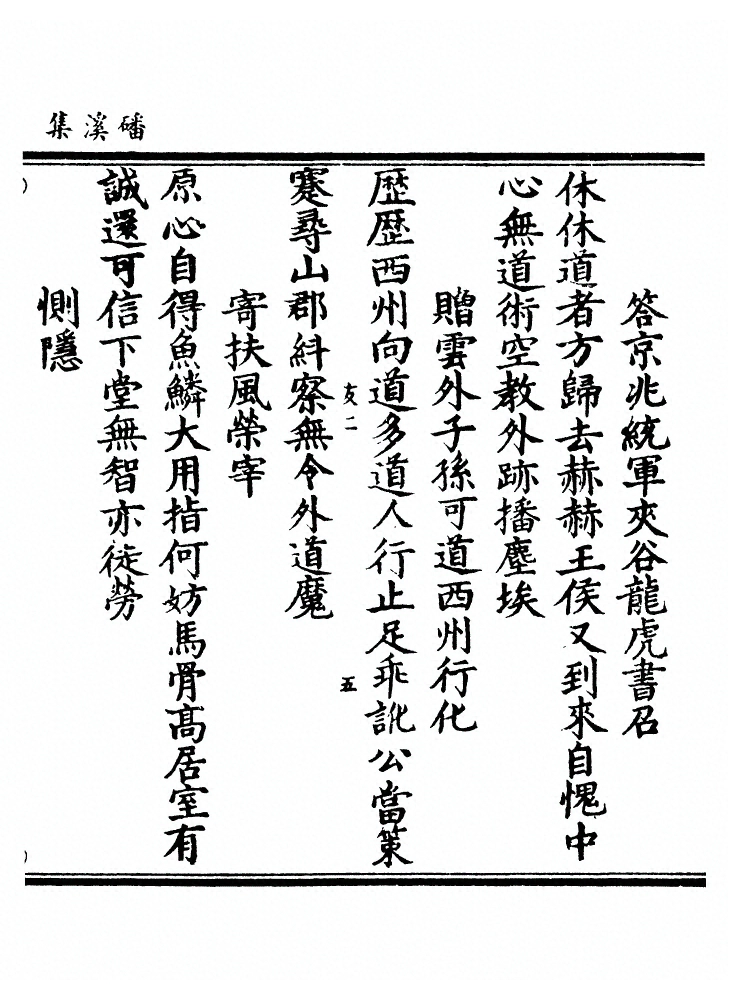 磻溪集
答京兆統軍夾谷龍虎書召
休休道者方歸去赫赫王侯又到來自愧中
心無道術空教外跡播塵埃
贈雲外子孫可道西州行化
歷歷西州向道多道人行止足乖訛公當策
友二
五
蹇尋山郡糾察無令外道魔
寄扶風榮宰
原心自得魚鱗大用指何妨馬骨高居室有
誠還可信下堂無智亦徒勞
惻隱